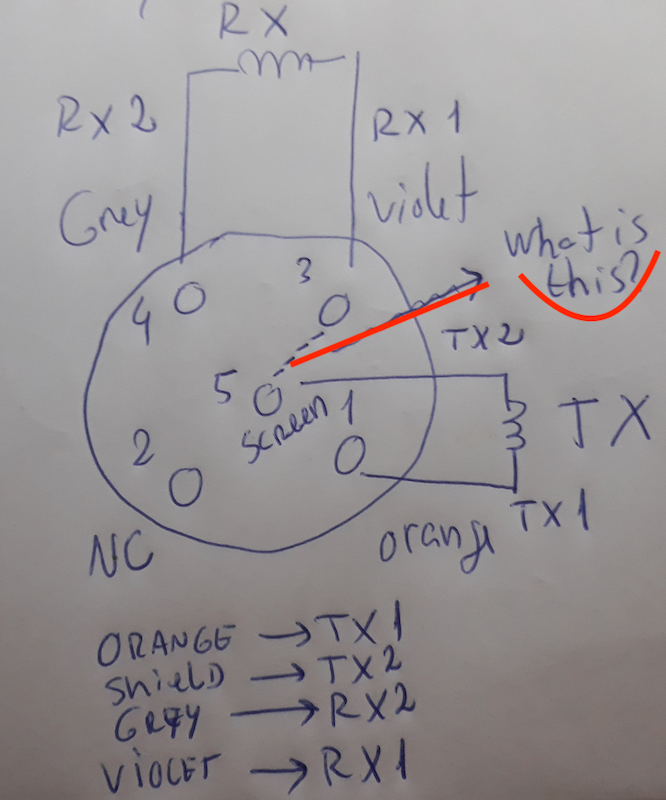 RX
RX 2
RX 1
Grey
violet
what is
this?
3
4
TX2
5
screen
1
TX
2
TX1
NC
orange
ORANGE → TX1
SHIELD → TX2
GREY → RX2
VIOLET → RX1